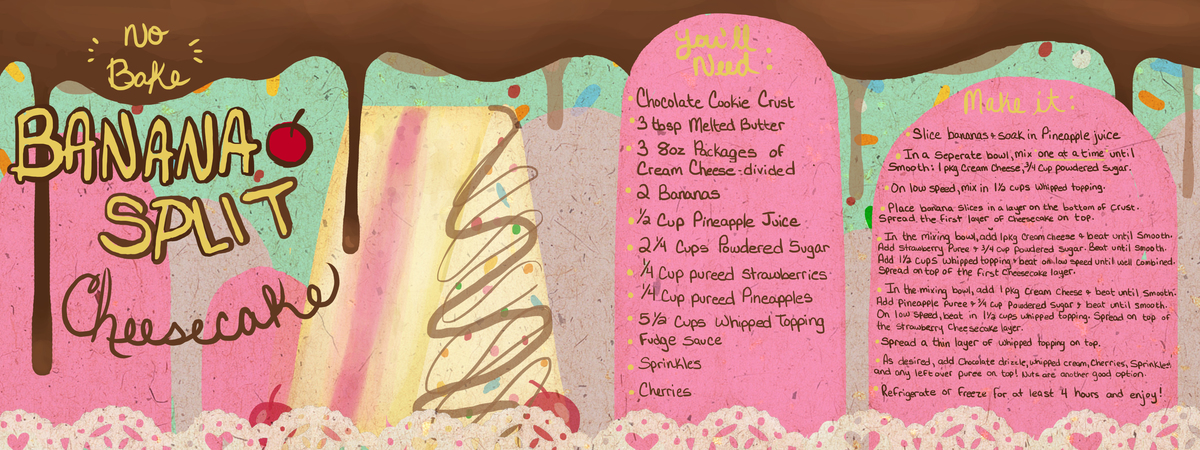 No
Bake
BANANA
SPLIT
Cheesecake
You'll
Need:
Chocolate Cookie Crust
3 tbsp Melted Butter
3 8oz Packages of
Cream Cheese-divided
2 Bananas
1/2 Cup Pineapple Juice
2 1/4 Cups Powdered Sugar
1/4 Cup pureed strawberries
1/4 Cup pureed Pineapples
5 1/2 Cups Whipped Topping
Fudge Sauce
Sprinkles
Cherries
Make it:
Slice bananas + soak in Pineapple juice
In a Seperate bowl, mix one at a time until
Smooth: 1 pkg Cream Cheese, 3/4 Cup powdered Sugar.
On low speed, mix in 1 1/2 cups whipped topping.
Place banana slices in a layer on the bottom of Crust.
Spread the first layer of Cheesecake on top.
In the mixing bowl, add 1 pkg Cream Cheese + beat until Smooth.
Add Strawberry Puree + 3/4 Cup Powdered Sugar. Beat until Smooth.
Add 1 1/2 Cups Whipped topping + beat on low speed until well Combined.
Spread on top of the first Cheesecake layer.
In the mixing bowl, add 1 pkg Cream Cheese + beat until Smooth.
Add Pineapple Puree + 3/4 Cup Powdered Sugar + beat until smooth.
On low speed, beat in 1 1/2 cups whipped topping. Spread on top of
the Strawberry Cheesecake layer.
Spread a thin layer of Whipped topping on top.
As desired, add Chocolate drizzle, whipped cream, Cherries, Sprinkles
and any left over puree on top! Nuts are another good option.
Refrigerate or Freeze for at least 4 hours and enjoy!